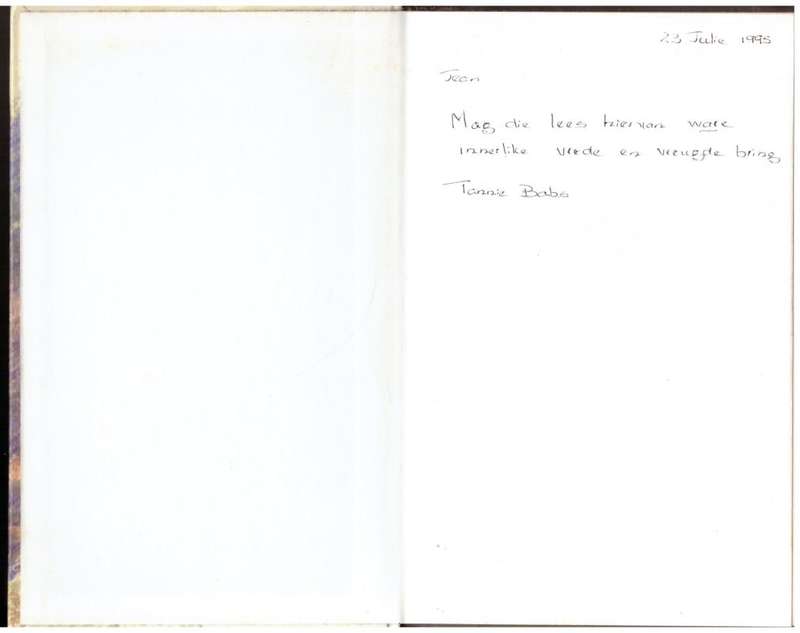 23 Julie 1995
Jean
Mag die lees hiervan ware
innerlike vrede en vreugde bring
Tannie Babs